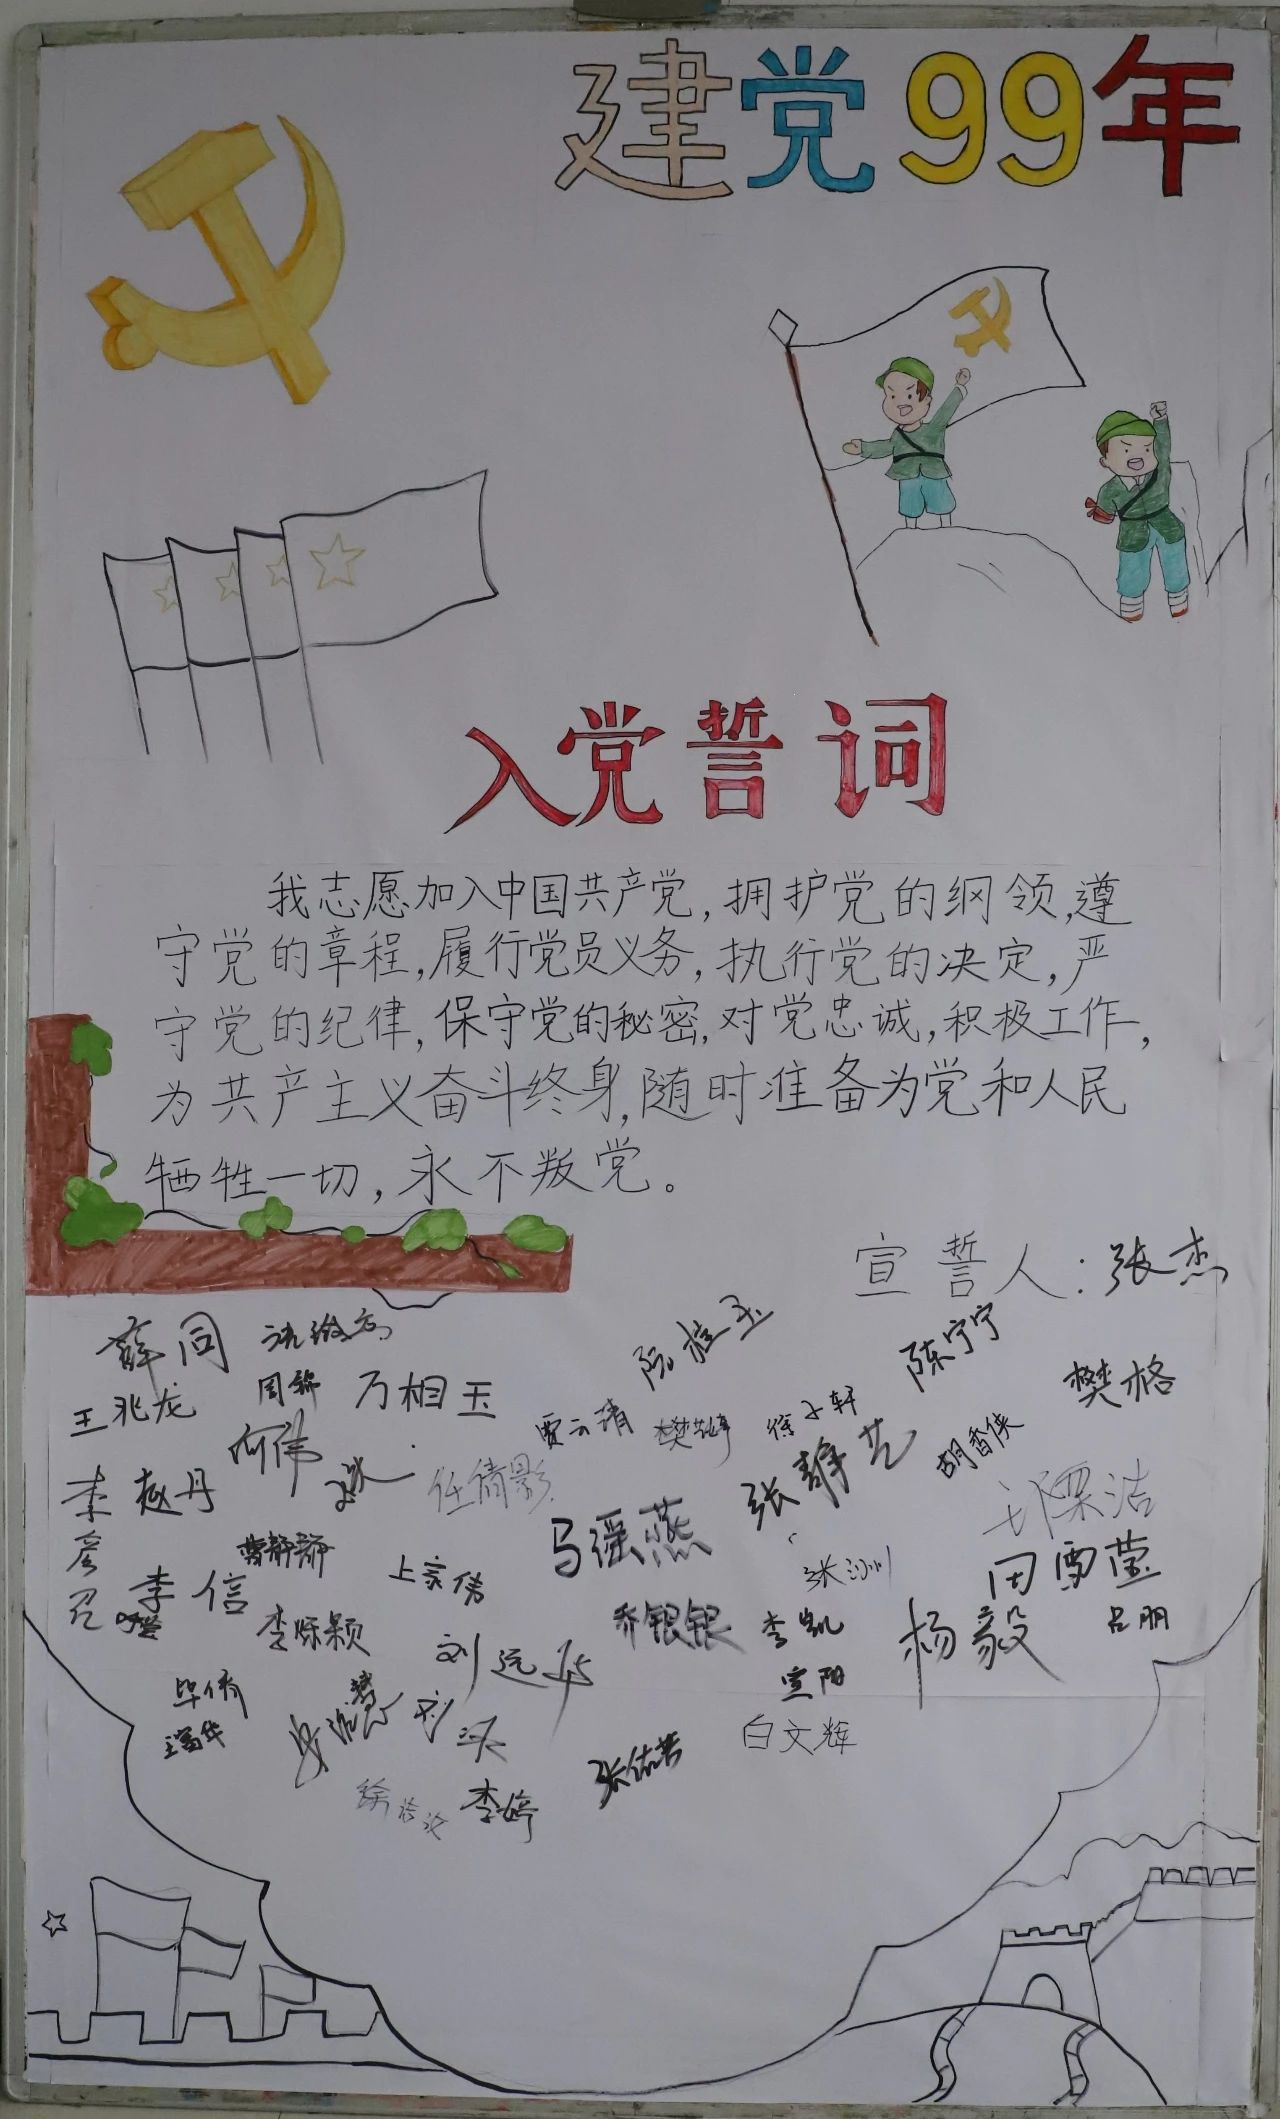 建党99年
入党誓词
我志愿加入中国共产党,拥护党的纲领,遵
守党的章程,履行党员义务,执行党的决定,严
守党的纪律,保守党的秘密,对党忠诚,积极工作,
为共产主义奋斗终身,随时准备为党和人民
牺牲一切,永不叛党。
宣誓人:张杰
薛同
陈宁宁
樊格
王兆龙
万相玉
贾云清
徐子轩
何伟
张静艺
胡香侠
赵丹
任倩影
马瑶燕
田雪莹
曹静静
李信
乔银银
李凯
杨毅
吕朋
李烁颖
刘远
毕倩
宣阳
白文辉
张佑芳
李婷